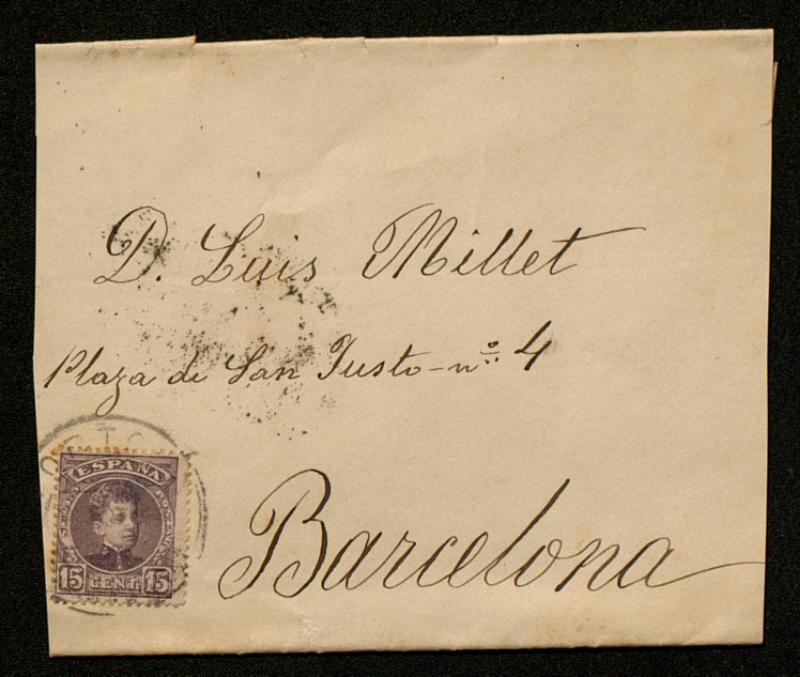 D. Luis Millet
Plaza de San Justo - nº 4
Barcelona
ESPAÑA
15 CENT. 15